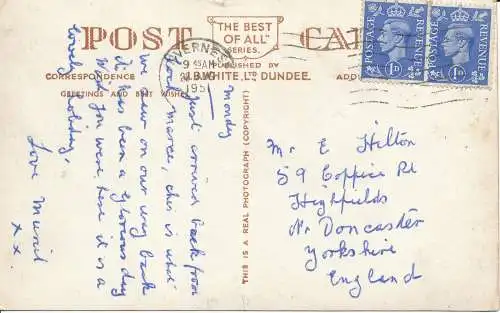 POST CARD
THE BEST
OF ALL
SERIES.
CORRESPONDENCE
PUBLISHED BY
J.B.WHITE, LTD DUNDEE.
GREETINGS AND BEST WISHES
INVERNESS
9 45AM
1951
POSTAGE
REVENUE
1D
POSTAGE
REVENUE
1D
THIS IS A REAL PHOTOGRAPH (COPYRIGHT)
Monday
Just arrived back from
this is what
we view on our way back
it has been a glorious day
Wish you were here it is a
lovely holiday.
Love Muriel
x x
Mr E Hilton
59 Coppice Rd
Highfields
Nr Doncaster
Yorkshire
England